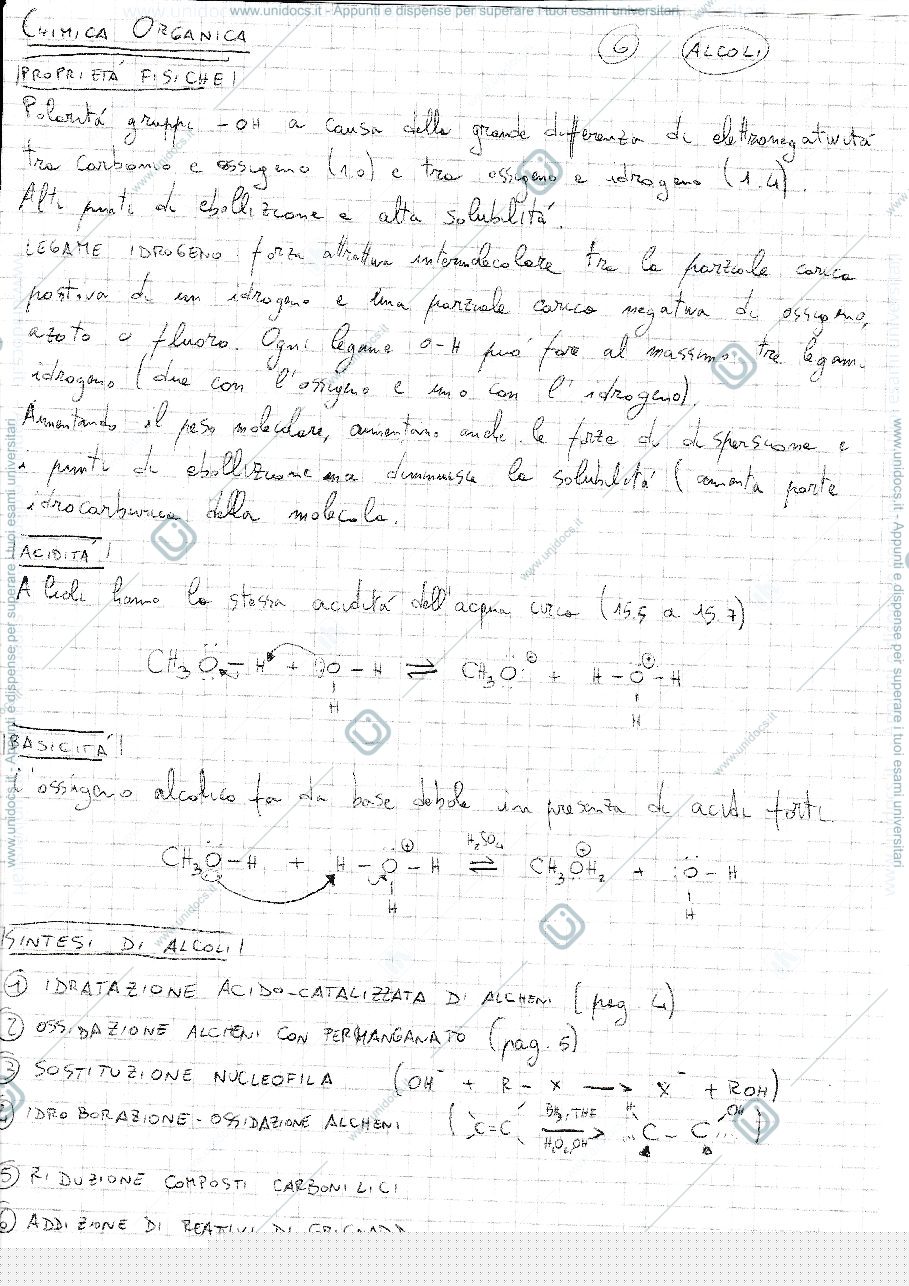 www.unidocs.it - Appunti e dispense per superare i tuoi esami universitari
CHIMICA ORGANICA
6 ALCOLI
PROPRIETÁ FISICHE
Polaritá gruppi -OH a causa della grande differenza di elettronegativitá
tra carbonio e ossigeno (1.0) e tra ossigeno e idrogeno (1.4).
Alti punti di ebollizione e alta solubilitá.
LEGAME IDROGENO: forza attrattiva intermolecolare tra la parziale carica
positiva di un idrogeno e una parziale carica negativa di ossigeno,
azoto o fluoro. Ogni legame O-H puó fare al massimo tre legami
idrogeno (due con l'ossigeno e uno con l'idrogeno).
Aumentando il peso molecolare, aumentano anche le forze di dispersione e
i punti di ebollizione ma diminuisce la solubilitá (aumenta parte
idrocarburica della molecola.
ACIDITÁ
Alcoli hanno la stessa aciditá dell'acqua circa (15.5 a 15.7)
CH3Ö-H + :O-H ⇌ CH3O:⊕ + H-O⊕-H
H H
BASICITÁ
L'ossigeno alcolico fa da base debole in presenza di acidi forti
H2SO4
CH3Ö-H + H-Ö⊕-H ⇌ CH3O⊕H2 + :Ö-H
H H
SINTESI DI ALCOLI
① IDRATAZIONE ACIDO-CATALIZZATA DI ALCHENI (pag. 4)
② OSSIDAZIONE ALCHENI CON PERMANGANATO (pag. 5)
③ SOSTITUZIONE NUCLEOFILA (OH⁻ + R-X → X⁻ + ROH)
④ IDROBORAZIONE-OSSIDAZIONE ALCHENI (C=C BH3, THF H2O2, OH → H C-C OH)
⑤ RIDUZIONE COMPOSTI CARBONILICI
⑥ ADDIZIONE DI REATTIVI DI GRIGNARD
www.unidocs.it - Appunti e dispense per superare i tuoi esami universitari
www.unidocs.it - Appunti e dispense per superare i tuoi esami universitari
www.unidocs.it
www.unidocs.it
www.unidocs.it
www.unidocs.it